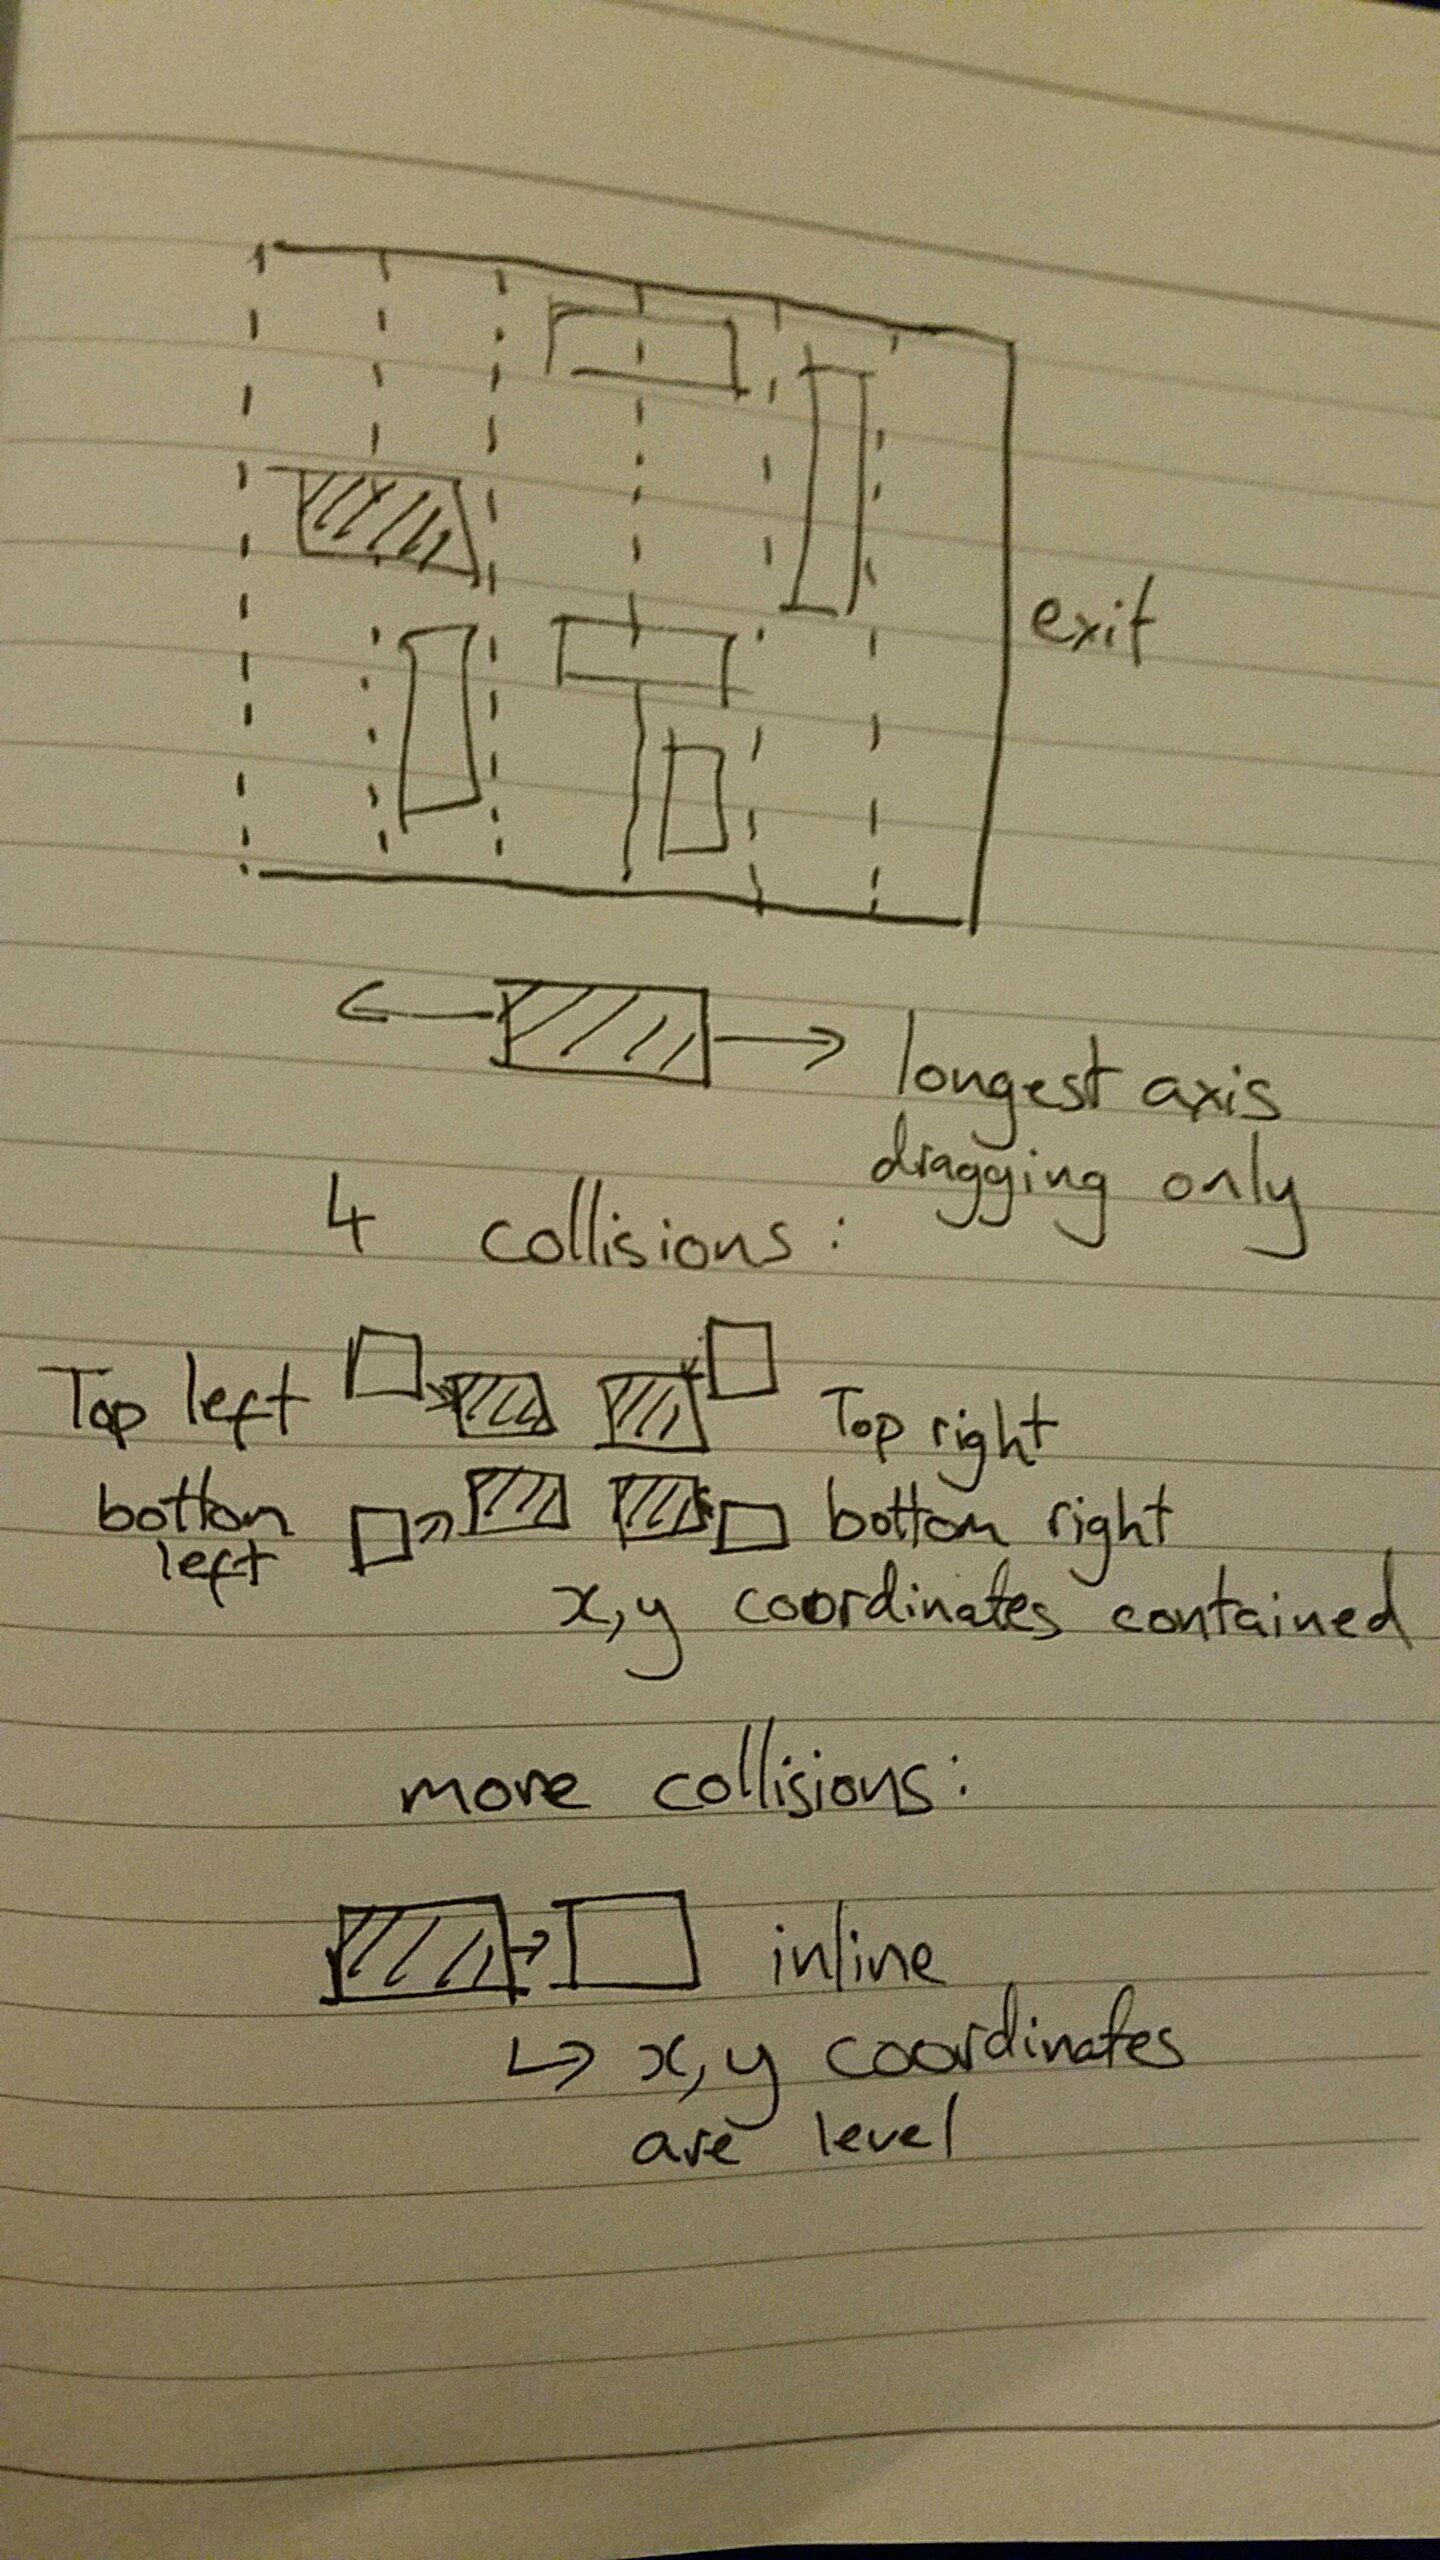 exit
longest axis
dragging only
4 collisions:
Top left
Top right
bottom
left
bottom right
x,y coordinates contained
more collisions:
inline
↳ x,y coordinates
are level